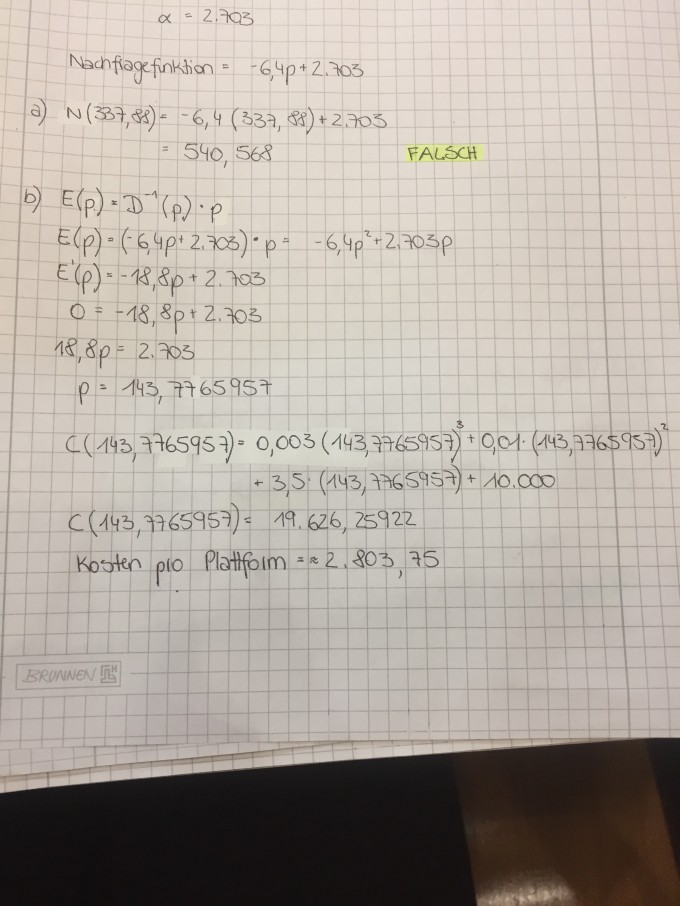 α = 2.703
Nachfragefunktion = -6,4p+2.703
a) N(337,88)= -6,4 (337,88)+2.703
= 540,568 FALSCH
b) E(p)= D⁻¹(p)·p
E(p)=(-6,4p+2.703)·p= -6,4p²+2.703p
E'(p)=-18,8p+2.703
0 = -18,8p+2.703
18,8p= 2.703
p= 143,7765957
C(143,7765957)= 0,003(143,7765957)³+0,01·(143,7765957)²
+ 3,5·(143,7765957)+10.000
C(143,7765957)= 19.626,25922
Kosten pro Plattform =≈2.803,75
BRUNNEN